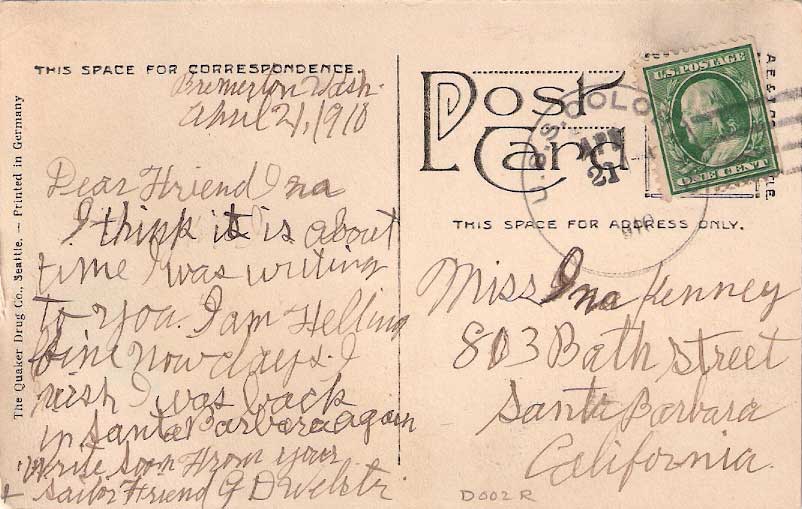 THIS SPACE FOR CORRESPONDENCE.
Bremerton Wash.
April 21, 1910
Dear Friend Ina
I think it is about
time I was writing
to you. I am Felling
fine now days. I
wish I was back
in Santa Barbara again
write soon From your
sailor Friend G D
The Quaker Drug Co., Seattle. — Printed in Germany
Post
Card
THIS SPACE FOR ADDRESS ONLY.
U.S.S. COLO
APR
21
U.S. POSTAGE
ONE CENT
Miss Ina Kenney
803 Bath Street
Santa Barbara
California.
D002R